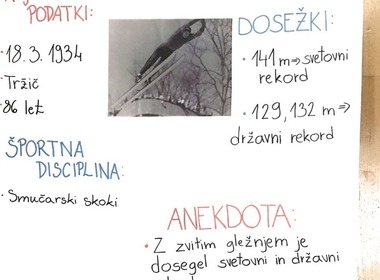 PODATKI:
18. 3. 1934
Tržič
86 let
ŠPORTNA
DISCIPLINA:
Smučarski skoki
DOSEŽKI:
• 141 m ⇒ svetovni
rekord
• 129, 132 m ⇒
državni rekord
ANEKDOTA:
• Z zvitim gležnjem je
dosegel svetovni in državni